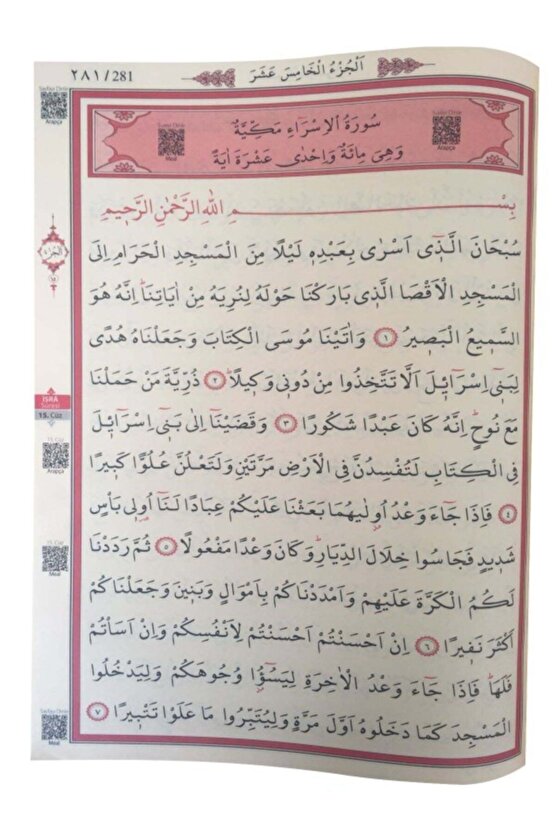 ٢٨١/281
اَلْجُزْءُ الْخَامِسَ عَشَرَ
Arapça
سُورَةُ الْاِسْرَاءِ مَكِّيَّةٌ
وَهِيَ مِائَةٌ وَاِحْدٰى عَشْرَةَ اٰيَةً
Meal
Arapça
بِسْــــــمِ اللّٰهِ الرَّحْمٰنِ الرَّحٖيمِ
سُبْحَانَ الَّذٖٓي اَسْرٰى بِعَبْدِهٖ لَيْلًا مِنَ الْمَسْجِدِ الْحَرَامِ اِلَى
الْمَسْجِدِ الْاَقْصَا الَّذٖي بَارَكْنَا حَوْلَهُ لِنُرِيَهُ مِنْ اٰيَاتِنَاۜ اِنَّهُ هُوَ
السَّمٖيعُ الْبَصٖيرُ ﴿١﴾ وَاٰتَيْنَا مُوسَى الْكِتَابَ وَجَعَلْنَاهُ هُدًى
لِبَنٖٓي اِسْرَٓائٖلَ اَلَّا تَتَّخِذُوا مِنْ دُونٖي وَكٖيلًاۜ ﴿٢﴾ ذُرِّيَّةَ مَنْ حَمَلْنَا
مَعَ نُوحٍۜ اِنَّهُ كَانَ عَبْدًا شَكُورًا ﴿٣﴾ وَقَضَيْنَٓا اِلٰى بَنٖٓي اِسْرَٓائٖلَ
فِي الْكِتَابِ لَتُفْسِدُنَّ فِي الْاَرْضِ مَرَّتَيْنِ وَلَتَعْلُنَّ عُلُوًّا كَبٖيرًا
﴿٤﴾ فَاِذَا جَٓاءَ وَعْدُ اُو۫لٰيهُمَا بَعَثْنَا عَلَيْكُمْ عِبَادًا لَنَٓا اُو۬لٖي بَأْسٍ
شَدٖيدٍ فَجَاسُوا خِلَالَ الدِّيَارِۜ وَكَانَ وَعْدًا مَفْعُولًا ﴿٥﴾ ثُمَّ رَدَدْنَا
لَكُمُ الْكَرَّةَ عَلَيْهِمْ وَاَمْدَدْنَاكُمْ بِاَمْوَالٍ وَبَنٖينَ وَجَعَلْنَاكُمْ
اَكْثَرَ نَفٖيرًا ﴿٦﴾ اِنْ اَحْسَنْتُمْ اَحْسَنْتُمْ لِاَنْفُسِكُمْ وَاِنْ اَسَأْتُمْ
فَلَهَاۜ فَاِذَا جَٓاءَ وَعْدُ الْاٰخِرَةِ لِيَسُٓؤُ۫ا وُجُوهَكُمْ وَلِيَدْخُلُوا
الْمَسْجِدَ كَمَا دَخَلُوهُ اَوَّلَ مَرَّةٍ وَلِيُتَبِّرُوا مَا عَلَوْا تَتْبٖيرًا ﴿٧﴾
İSRÂ
Sûresi
15. Cüz
Arapça
Meal
Meal